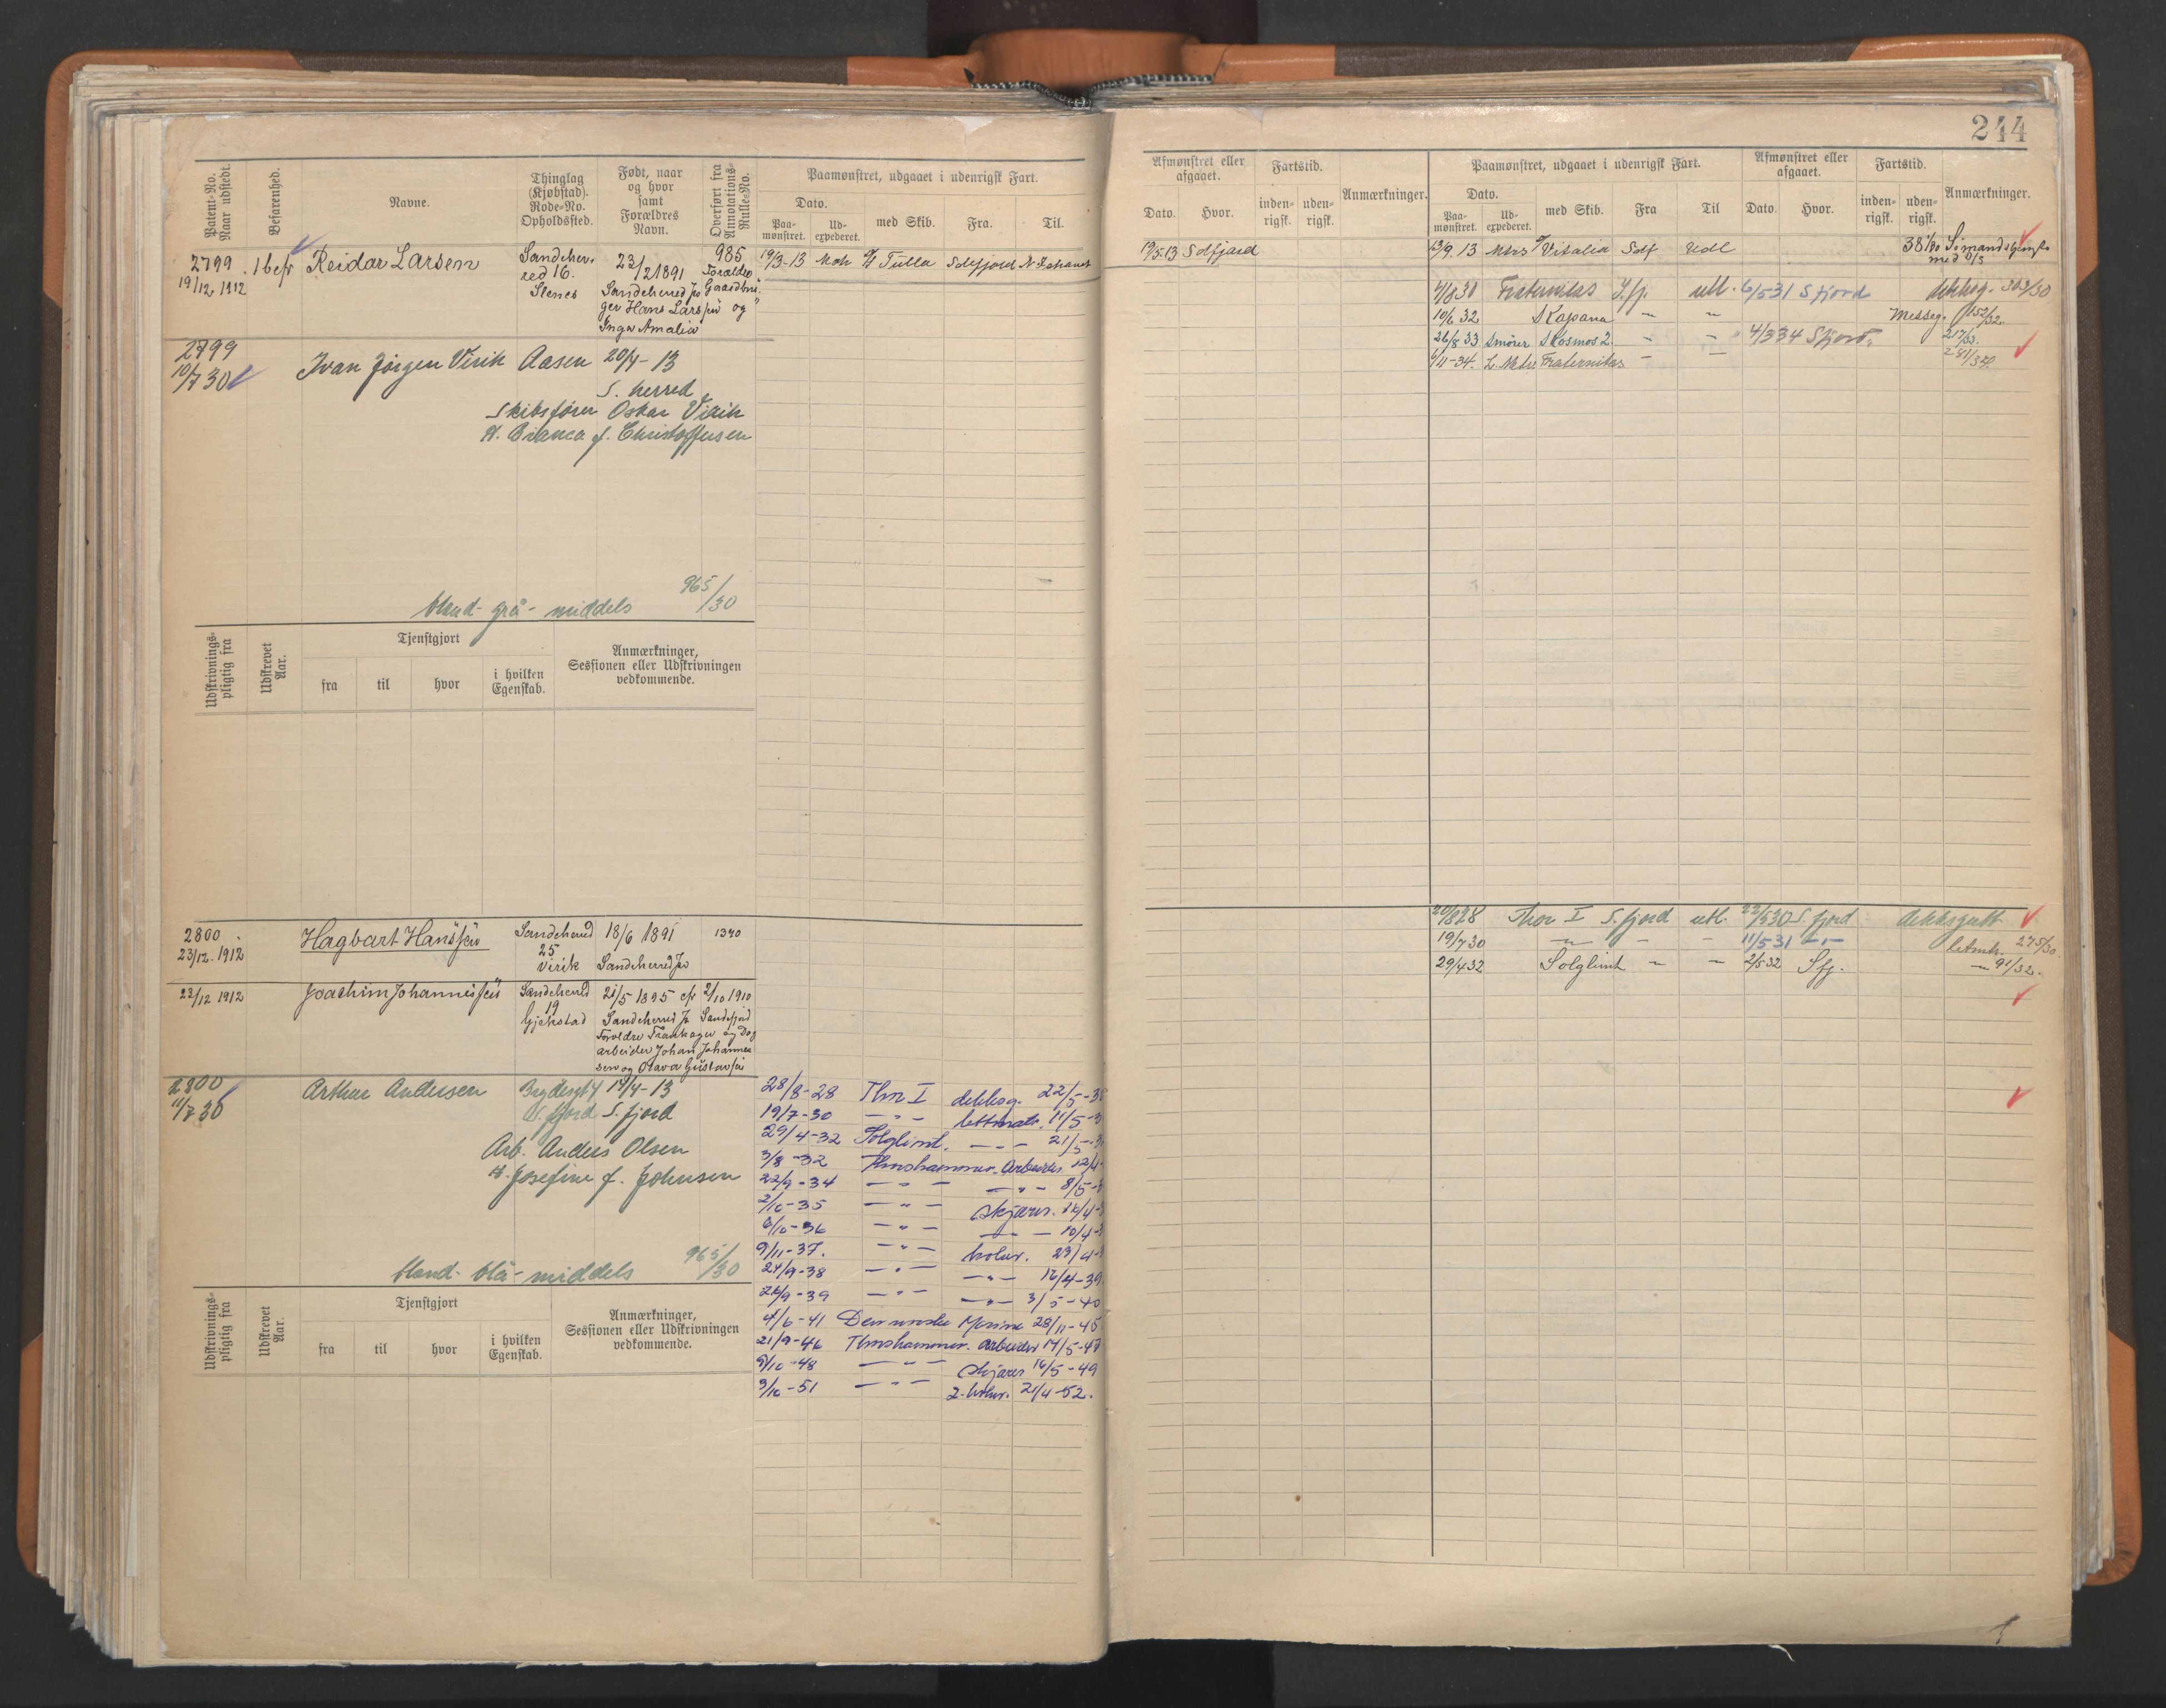 244
Patent-No. Naar udstedt.
Befarenhed.
Navne.
Thinglag (Kjøbstad). Rode-No. Opholdssted.
Født, naar og hvor samt Forældres Navn.
Overført fra Annotations-Rulle-No.
Paamønstret, udgaaet i udenrigsk Fart.
Dato.
Paa-mønstret.
Ud-expederet.
med Skib.
Fra.
Til.
Afmønstret eller afgaaet.
Dato.
Hvor.
Fartstid.
inden-rigsk.
uden-rigsk.
Anmærkninger.
Paamønstret, udgaaet i udenrigsk Fart.
Dato.
Paa-mønstret.
Ud-expederet.
med Skib.
Fra
Til
Afmønstret eller afgaaet.
Dato.
Hvor.
Fartstid.
inden-rigsk.
uden-rigsk.
Anmærkninger.
2799 . 1 befr Reidar Larsen Sandeher- 23/2 1891 985
19/12 1912 red 16. Forældre
Stenes Sandeherred Gaardbru-
ger Hans Larsen og
Inga Amalia
19/3-13 Mok Tulla Sdefjord
19/5 13 Sdfjord
13/9. 13 Mtrs Vitalia Sdf Udl
2799
10/7 30 Ivar Jörgen Virik Aasen 20/4-13
S. herred
Skibsfører Oskar Virik
H. Bianca f. Christoffersen
blond- grå- middels 965/30
4/8 30 Fraternitas S.fj. utl. 6/5 31 S fjord dekksg. 303/30
10/6 32 S Kapana — — Messeg. 152/32.
26/8 33 Smører S Kosmos 2. — — 4/3 34 S fjord. 217/33.
6/11-34. L. Matr. Fraternitas — — 281/34.
Udskrivnings-pligtig fra
Udskrevet Aar.
Tjenstgjort
fra
til
hvor
i hvilken Egenskab.
Anmærkninger, Sessionen eller Udskrivningen vedkommende.
2800 . Hagbart Hanssen Sandeherred 18/6 1891 1340
23/12. 1912 25
Virik Sandeherred
23/12 1912 Joachim Johannessen Sandeherred 21/5 1895 efr 2/10 1910
19
Gjekstad Sandeherred Sandefjord
Forældre Trankoger og Dag
arbeider Johan Johannes
sen og Olava Gustavsen
20/8 28 Thor I S. fjord utl. 22/5 30 S. fjord dekksgutt.
19/7 30 — — — 11/5 31 — letmtr. 275/30.
29/4 32 Solglimt — — 2/5 32 Sfj. — 91/32.
2800
11/7 30 Arthur Andersen Brydesgt 4 14/4-13
S. fjord S. fjord
Arb. Anders Olsen
H. Josefine f. Johnsen
blond- blå- middels 965/30
28/8-28 Thor I dekksg. 22/5-30
19/7-30 — " — lettmatr. 11/5-3
29/4-32 Solglimt. — " — 21/5-3
3/8-32 Thorshammer. Arbeider. 12/4-
22/9-34 — " — — " — 8/5-3
2/10-35 — " — skjærer. 16/4-3
6/10-36 — " — — " — 10/4-3
9/11-37. — " — koker. 23/4-3
24/9-38 — " — — " — 16/4-39.
26/9-39 — " — — " — 3/5-40
4/6-41 Den norske Marine 28/11-45
21/9-46 Thorshammer. Arbeider 14/5-47
9/10-48 — " — skjærer 16/5-49
3/10-51 — " — 2. koker. 21/4-52.
Udskrivnings-pligtig fra
Udskrevet Aar.
Tjenstgjort
fra
til
hvor
i hvilken Egenskab.
Anmærkninger, Sessionen eller Udskrivningen vedkommende.